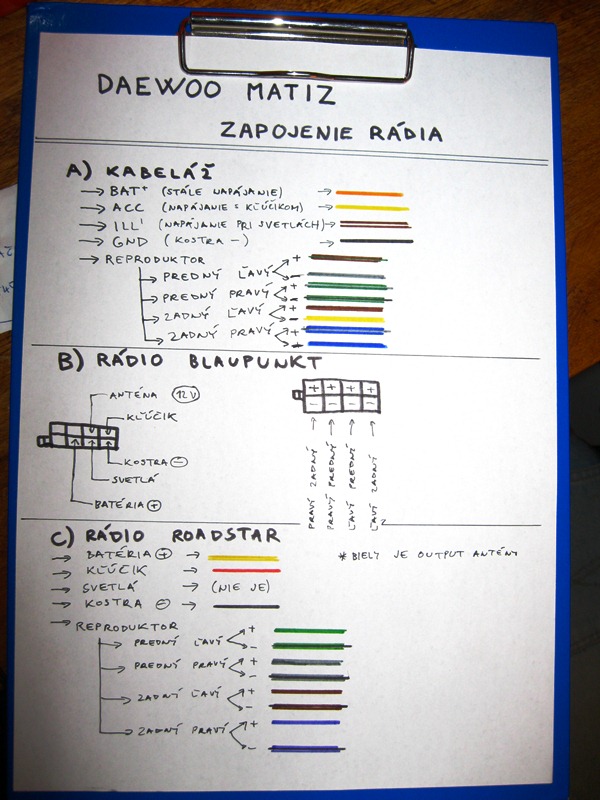 DAEWOO MATIZ
ZAPOJENIE RÁDIA
A) KABELÁŽ
→ BAT+ (STÁLE NAPÁJANIE) →
→ ACC (NAPÁJANIE S KĽÚČIKOM) →
→ ILL' (NAPÁJANIE PRI SVETLÁCH) →
→ GND (KOSTRA -) →
→ REPRODUKTOR
PREDNÝ ĽAVÝ + -
PREDNÝ PRAVÝ + -
ZADNÝ ĽAVÝ + -
ZADNÝ PRAVÝ + -
B) RÁDIO BLAUPUNKT
ANTÉNA 12V
KĽÚČIK
KOSTRA -
SVETLÁ
BATÉRIA +
+ + + +
- - - -
PRAVÝ ZADNÝ
PRAVÝ PREDNÝ
ĽAVÝ PREDNÝ
ĽAVÝ ZADNÝ
C) RÁDIO ROADSTAR
→ BATÉRIA + →
→ KĽÚČIK →
→ SVETLÁ → (NIE JE)
→ KOSTRA - →
* BIELY JE OUTPUT ANTÉNY
→ REPRODUKTOR
PREDNÝ ĽAVÝ + -
PREDNÝ PRAVÝ + -
ZADNÝ ĽAVÝ + -
ZADNÝ PRAVÍ + -